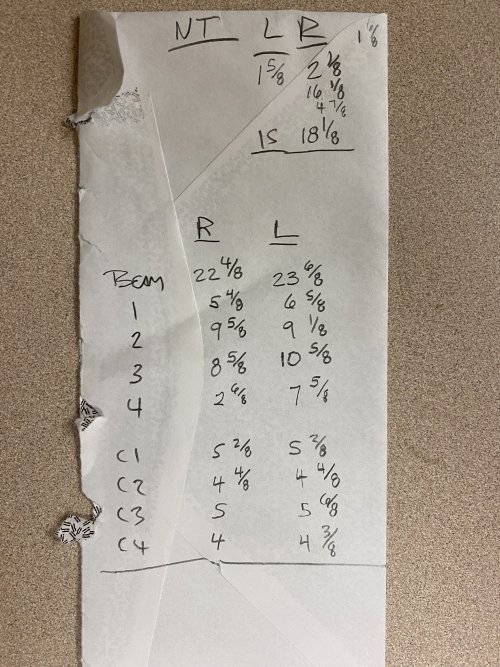 NT L R 1 6/8
1 5/8 2 1/8
16 1/8
4 7/8
IS 18 1/8
R L
BEAM 22 4/8 23 6/8
1 5 4/8 6 5/8
2 9 5/8 9 1/8
3 8 5/8 10 5/8
4 2 6/8 7 5/8
C1 5 2/8 5 2/8
C2 4 4/8 4 4/8
C3 5 5 6/8
C4 4 4 3/8